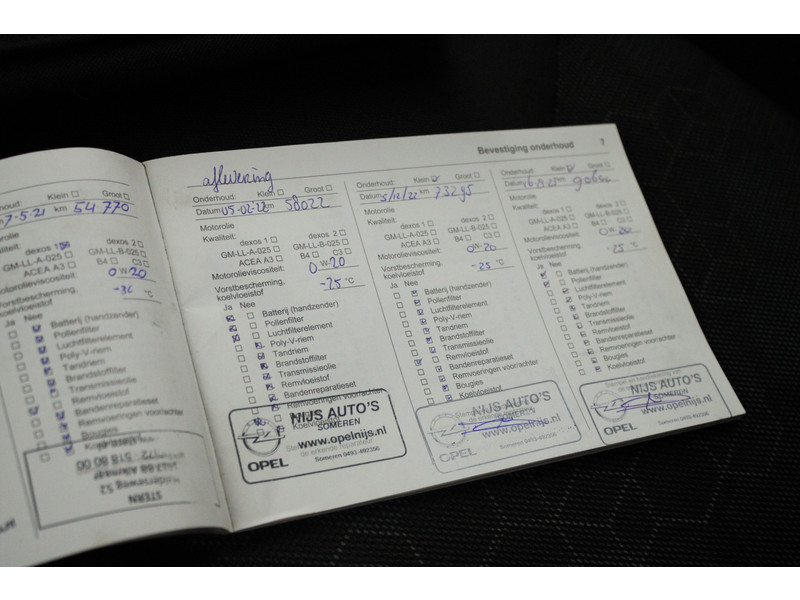 Bevestiging onderhoud 7
Onderhoud: Klein Groot
7-5-21 km 54770
Motorolie
Kwaliteit:
dexos 1 dexos 2
GM-LL-A-025 GM-LL-B-025
ACEA A3 B4 C3
Motorolieviscositeit: 0 W-20
Vorstbescherming, koelvloeistof °C
Ja Nee
Batterij (handzender)
Pollenfilter
Luchtfilterelement
Poly-V-riem
Tandriem
Brandstoffilter
Transmissieolie
Remvloeistof
Bandenreparatieset
Remvoeringen voor/achter
Bougies
STERN
Helderseweg 52
aflevering
Onderhoud: Klein Groot
Datum 05-02-22 km 58022
Motorolie
Kwaliteit:
dexos 1 dexos 2
GM-LL-A-025 GM-LL-B-025
ACEA A3 B4 C3
Motorolieviscositeit: 0 W-20
Vorstbescherming,
koelvloeistof -25 °C
Ja Nee
Batterij (handzender)
Pollenfilter
Luchtfilterelement
Poly-V-riem
Tandriem
Brandstoffilter
Transmissieolie
Remvloeistof
Bandenreparatieset
Remvoeringen voor/achter
NIJS AUTO'S
SOMEREN
www.opelnijs.nl
OPEL
Someren 0493-492356
Onderhoud: Klein Groot
Datum 5/12/22 km 73295
Motorolie
Kwaliteit:
dexos 1 dexos 2
GM-LL-A-025 GM-LL-B-025
ACEA A3 B4 C3
Motorolieviscositeit: 0W-20
Vorstbescherming,
koelvloeistof -25 °C
Ja Nee
Batterij (handzender)
Pollenfilter
Luchtfilterelement
Poly-V-riem
Tandriem
Brandstoffilter
Transmissieolie
Remvloeistof
Bandenreparatieset
Remvoeringen voor/achter
Bougies
Koelvloeistof
NIJS AUTO'S
SOMEREN
www.opelnijs.nl
OPEL
Someren 0493-492356
Onderhoud: Klein Groot
Datum km
Motorolie
Kwaliteit:
dexos 1 dexos 2
GM-LL-A-025 GM-LL-B-025
ACEA A3 B4 C3
Motorolieviscositeit: 0W-20
Vorstbescherming,
koelvloeistof -25 °C
Ja Nee
Batterij (handzender)
Pollenfilter
Luchtfilterelement
Poly-V-riem
Tandriem
Brandstoffilter
Transmissieolie
Remvloeistof
Bandenreparatieset
Remvoeringen voor/achter
Bougies
Koelvloeistof
NIJS AUTO'S
SOMEREN
www.opelnijs.nl
OPEL
Someren 0493-492356